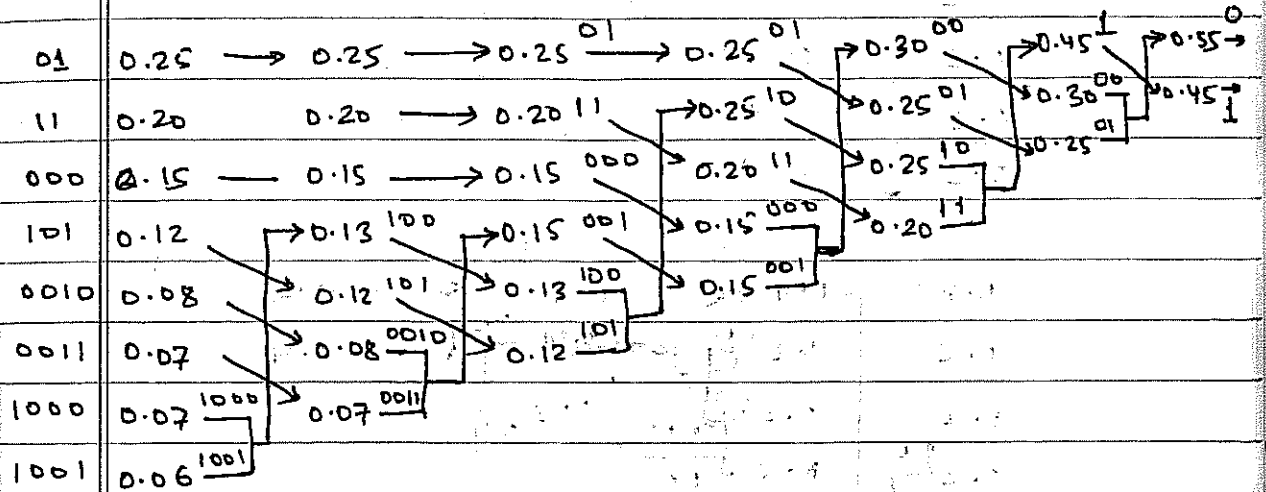 0
01 0.25 → 0.25 → 0.25 01 → 0.25 01 0.30 00 0.45 1 0.55 →
11 0.20 0.20 → 0.20 11 0.25 10 0.25 01 0.30 00 0.45 → 1
000 0.15 — 0.15 → 0.15 000 0.20 11 0.25 10 0.25 01
101 0.12 0.13 100 0.15 001 0.15 000 0.20 11
0010 0.08 0.12 101 0.13 100 0.15 001
0011 0.07 0.08 0010 0.12 101
1000 0.07 1000 0.07 0011
1001 0.06 1001